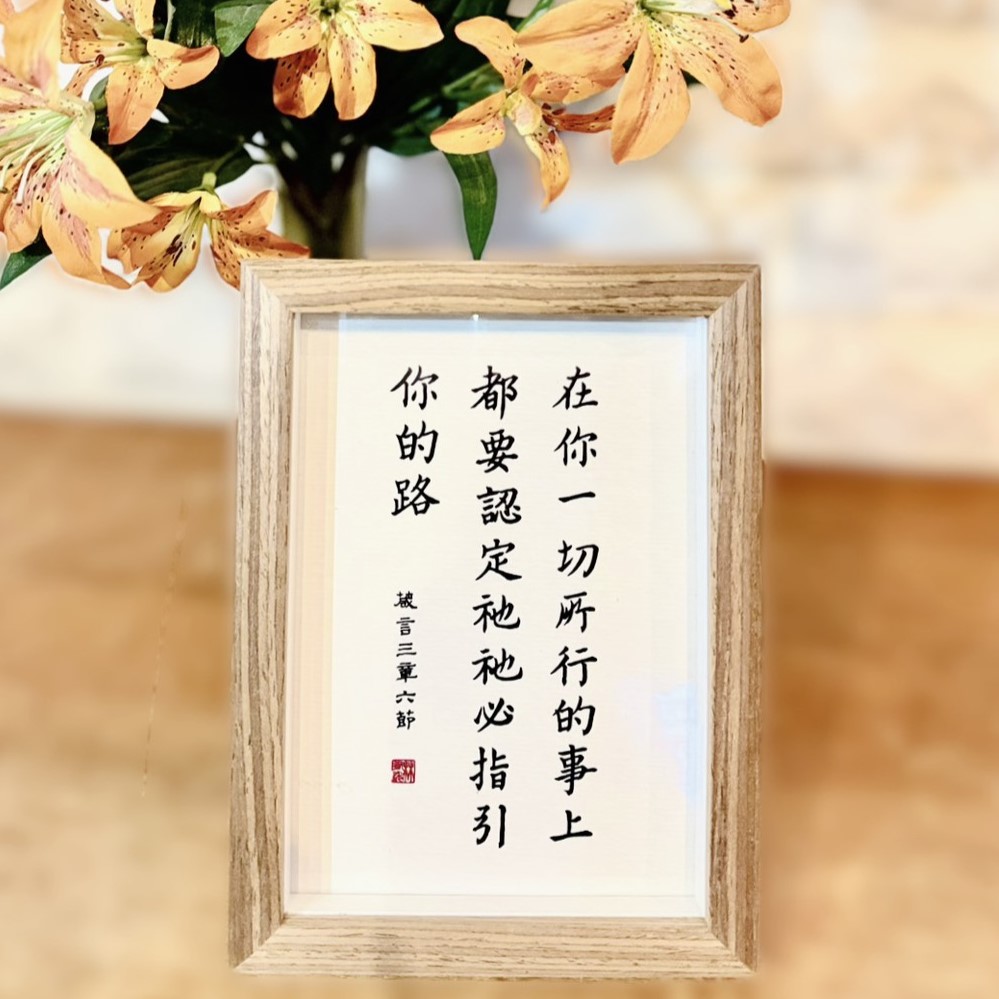 在你一切所行的事上
都要認定祂祂必指引
你的路
箴言三章六節